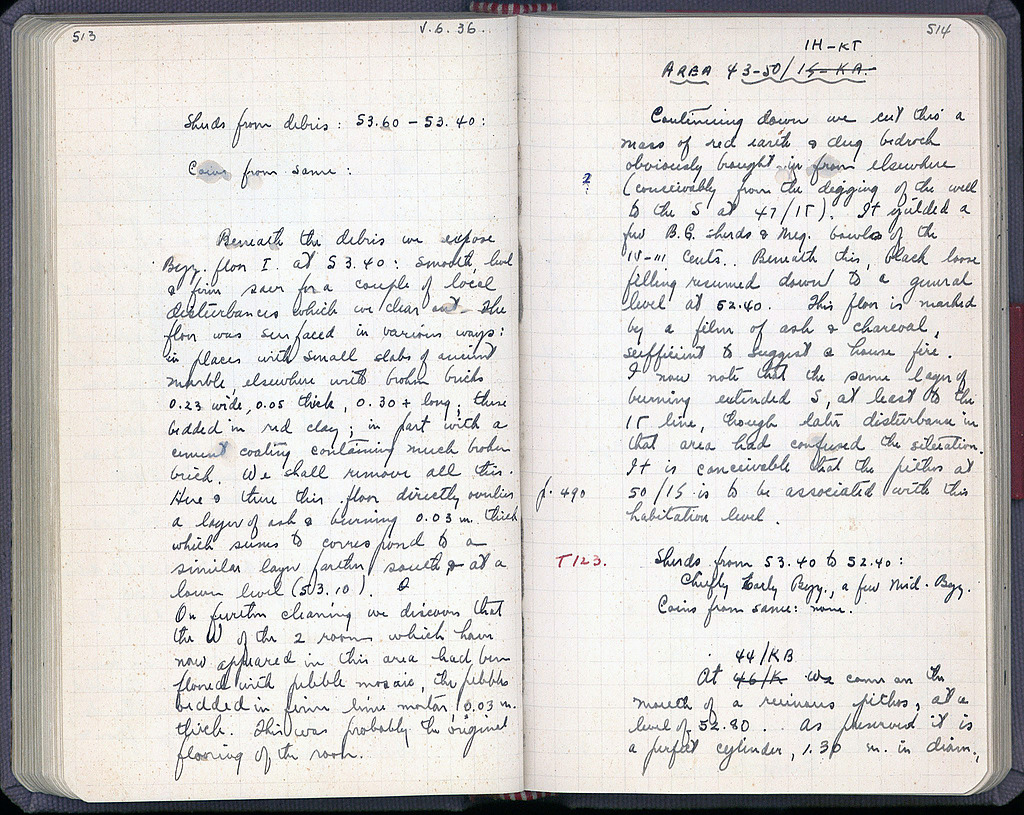 513
V. 6. 36.
Sherds from debris: 53.60 – 53.40:
Coins from same:
Beneath the debris we expose
Byz. floor I. at 53.40: smooth, level
& firm save for a couple of local
disturbances which we clear out. The
floor was surfaced in various ways:
in places with small slabs of ancient
marble, elsewhere with broken bricks
0.23 wide, 0.05 thick, 0.30+ long; these
bedded in red clay; in part with a
cement coating containing much broken
brick. We shall remove all this.
Here & there this floor directly overlies
a layer of ash & burning 0.03 m. thick
which seems to correspond to a
similar layer farther south & at a
lower level (53.10).
On further cleaning we discover that
the W of the 2 rooms which have
now appeared in this area had been
floored with pebble mosaic, the pebbles
bedded in firm lime mortar, 0.03 m.
thick. This was probably the original
flooring of the room.
514
IH–KT
AREA 43–50/15–KA.
Continuing down we cut thro' a
mass of red earth & dug bedrock
obviously brought in from elsewhere
?
(conceivably from the digging of the well
to the S at 47/IE). It yielded a
few B.G. sherds & Meg. bowls of the
IV–III cents.. Beneath this, black loose
filling resumed down to a general
level at 52.40. This floor is marked
by a film of ash & charcoal,
sufficient to suggest a house fire.
I now note that the same layer of
burning extended S, at least to the
IE line, though later disturbance in
that area had confused the situation.
It is conceivable that the pithos at
p. 490
50/15 is to be associated with this
habitation level.
T123.
Sherds from 53.40 to 52.40:
Chiefly Early Byz., a few Mid. Byz.
Coins from same: none.
44/KB
At 46/K we come on the
mouth of a ruinous pithos, at a
level of 52.80. As preserved it is
a perfect cylinder, 1.30 m. in diam.,